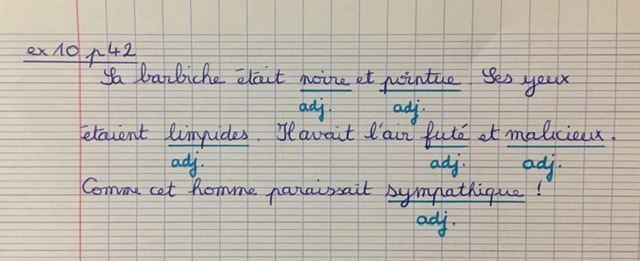 ex 10 p 42
Sa barbiche était noire et pointue. Ses yeux
adj. adj.
étaient limpides. Il avait l'air futé et malicieux.
adj. adj. adj.
Comme cet homme paraissait sympathique !
adj.